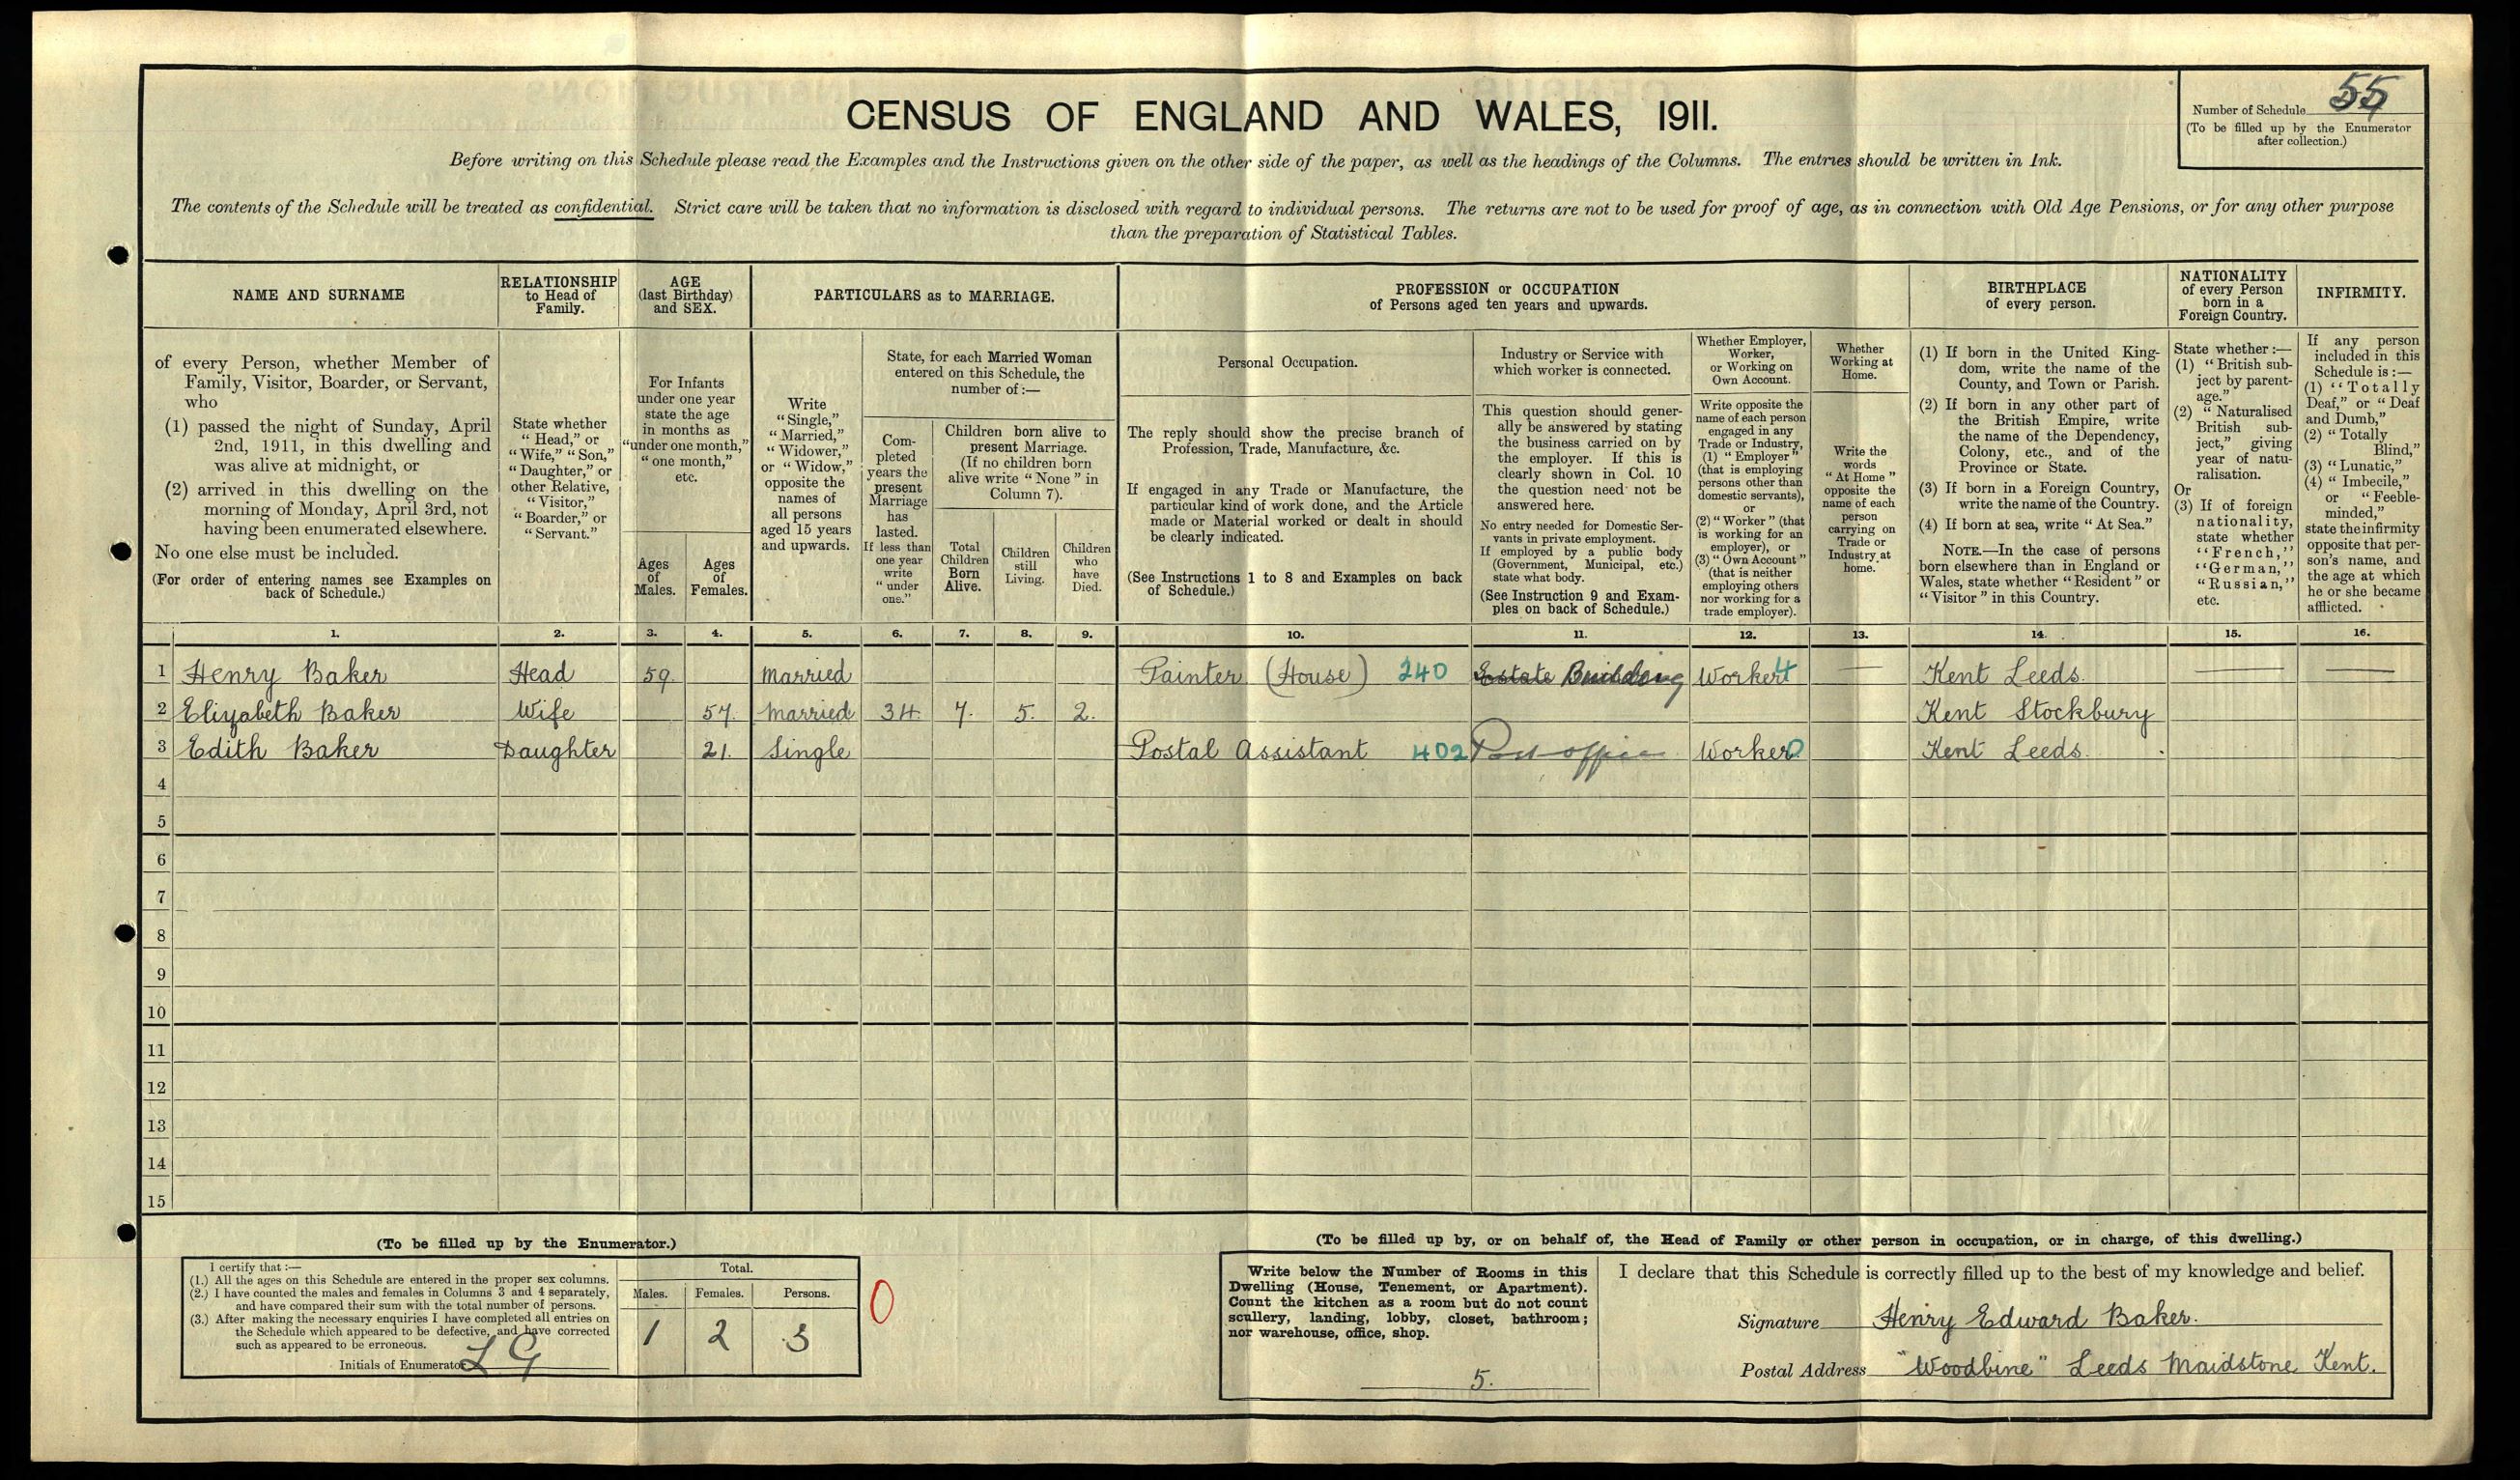 Number of Schedule 55
(To be filled up by the Enumerator
after collection.)
CENSUS OF ENGLAND AND WALES, 1911.
Before writing on this Schedule please read the Examples and the Instructions given on the other side of the paper, as well as the headings of the Columns. The entries should be written in Ink.
The contents of the Schedule will be treated as confidential. Strict care will be taken that no information is disclosed with regard to individual persons. The returns are not to be used for proof of age, as in connection with Old Age Pensions, or for any other purpose
than the preparation of Statistical Tables.
NAME AND SURNAME
of every Person, whether Member of
Family, Visitor, Boarder, or Servant,
who
(1) passed the night of Sunday, April
2nd, 1911, in this dwelling and
was alive at midnight, or
(2) arrived in this dwelling on the
morning of Monday, April 3rd, not
having been enumerated elsewhere.
No one else must be included.
(For order of entering names see Examples on
back of Schedule.)
RELATIONSHIP
to Head of
Family.
State whether
"Head," or
"Wife," "Son,"
"Daughter," or
other Relative,
"Visitor,"
"Boarder," or
"Servant."
AGE
(last Birthday)
and SEX.
For Infants
under one year
state the age
in months as
"under one month,"
"one month,"
etc.
Ages
of
Males.
Ages
of
Females.
PARTICULARS as to MARRIAGE.
Write
"Single,"
"Married,"
"Widower,"
or "Widow,"
opposite the
names of
all persons
aged 15 years
and upwards.
State, for each Married Woman
entered on this Schedule, the
number of:—
Com-
pleted
years the
present
Marriage
has
lasted.
If less than
one year
write
"under
one."
Children born alive to
present Marriage.
(If no children born
alive write "None" in
Column 7).
Total
Children
Born
Alive.
Children
still
Living.
Children
who
have
Died.
PROFESSION or OCCUPATION
of Persons aged ten years and upwards.
Personal Occupation.
The reply should show the precise branch of
Profession, Trade, Manufacture, &c.
If engaged in any Trade or Manufacture, the
particular kind of work done, and the Article
made or Material worked or dealt in should
be clearly indicated.
(See Instructions 1 to 8 and Examples on back
of Schedule.)
Industry or Service with
which worker is connected.
This question should gener-
ally be answered by stating
the business carried on by
the employer. If this is
clearly shown in Col. 10
the question need not be
answered here.
No entry needed for Domestic Ser-
vants in private employment.
If employed by a public body
(Government, Municipal, etc.)
state what body.
(See Instruction 9 and Exam-
ples on back of Schedule.)
Whether Employer,
Worker,
or Working on
Own Account.
Write opposite the
name of each person
engaged in any
Trade or Industry,
(1) "Employer"
(that is employing
persons other than
domestic servants),
or
(2) "Worker" (that
is working for an
employer), or
(3) "Own Account"
(that is neither
employing others
nor working for a
trade employer).
Whether
Working at
Home.
Write the
words
"At Home"
opposite the
name of each
person
carrying on
Trade or
Industry at
home.
BIRTHPLACE
of every person.
(1) If born in the United King-
dom, write the name of the
County, and Town or Parish.
(2) If born in any other part of
the British Empire, write
the name of the Dependency,
Colony, etc., and of the
Province or State.
(3) If born in a Foreign Country,
write the name of the Country.
(4) If born at sea, write "At Sea."
NOTE.—In the case of persons
born elsewhere than in England or
Wales, state whether "Resident" or
"Visitor" in this Country.
NATIONALITY
of every Person
born in a
Foreign Country.
State whether:—
(1) "British sub-
ject by parent-
age."
(2) "Naturalised
British sub-
ject," giving
year of natu-
ralisation.
Or
(3) If of foreign
nationality,
state whether
"French,"
"German,"
"Russian,"
etc.
INFIRMITY.
If any person
included in this
Schedule is:—
(1) "Totally
Deaf," or "Deaf
and Dumb,"
(2) "Totally
Blind,"
(3) "Lunatic,"
(4) "Imbecile,"
or "Feeble-
minded,"
state the infirmity
opposite that per-
son's name, and
the age at which
he or she became
afflicted.
1. 2. 3. 4. 5. 6. 7. 8. 9. 10. 11. 12. 13. 14. 15. 16.
1 Henry Baker Head 59. Married Painter (House) 240 Estate Building Worker 4 — Kent Leeds. — —
2 Elizabeth Baker Wife 57. Married 34. 7. 5. 2. Kent Stockbury
3 Edith Baker Daughter 21. Single Postal Assistant 402 Post office Worker 0 Kent Leeds.
4
5
6
7
8
9
10
11
12
13
14
15
(To be filled up by the Enumerator.)
I certify that:—
(1.) All the ages on this Schedule are entered in the proper sex columns.
(2.) I have counted the males and females in Columns 3 and 4 separately,
and have compared their sum with the total number of persons.
(3.) After making the necessary enquiries I have completed all entries on
the Schedule which appeared to be defective, and have corrected
such as appeared to be erroneous.
Initials of Enumerator L G
Total.
Males. Females. Persons.
1 2 3
0
(To be filled up by, or on behalf of, the Head of Family or other person in occupation, or in charge, of this dwelling.)
Write below the Number of Rooms in this
Dwelling (House, Tenement, or Apartment).
Count the kitchen as a room but do not count
scullery, landing, lobby, closet, bathroom;
nor warehouse, office, shop.
5.
I declare that this Schedule is correctly filled up to the best of my knowledge and belief.
Signature Henry Edward Baker.
Postal Address "Woodbine" Leeds Maidstone Kent.